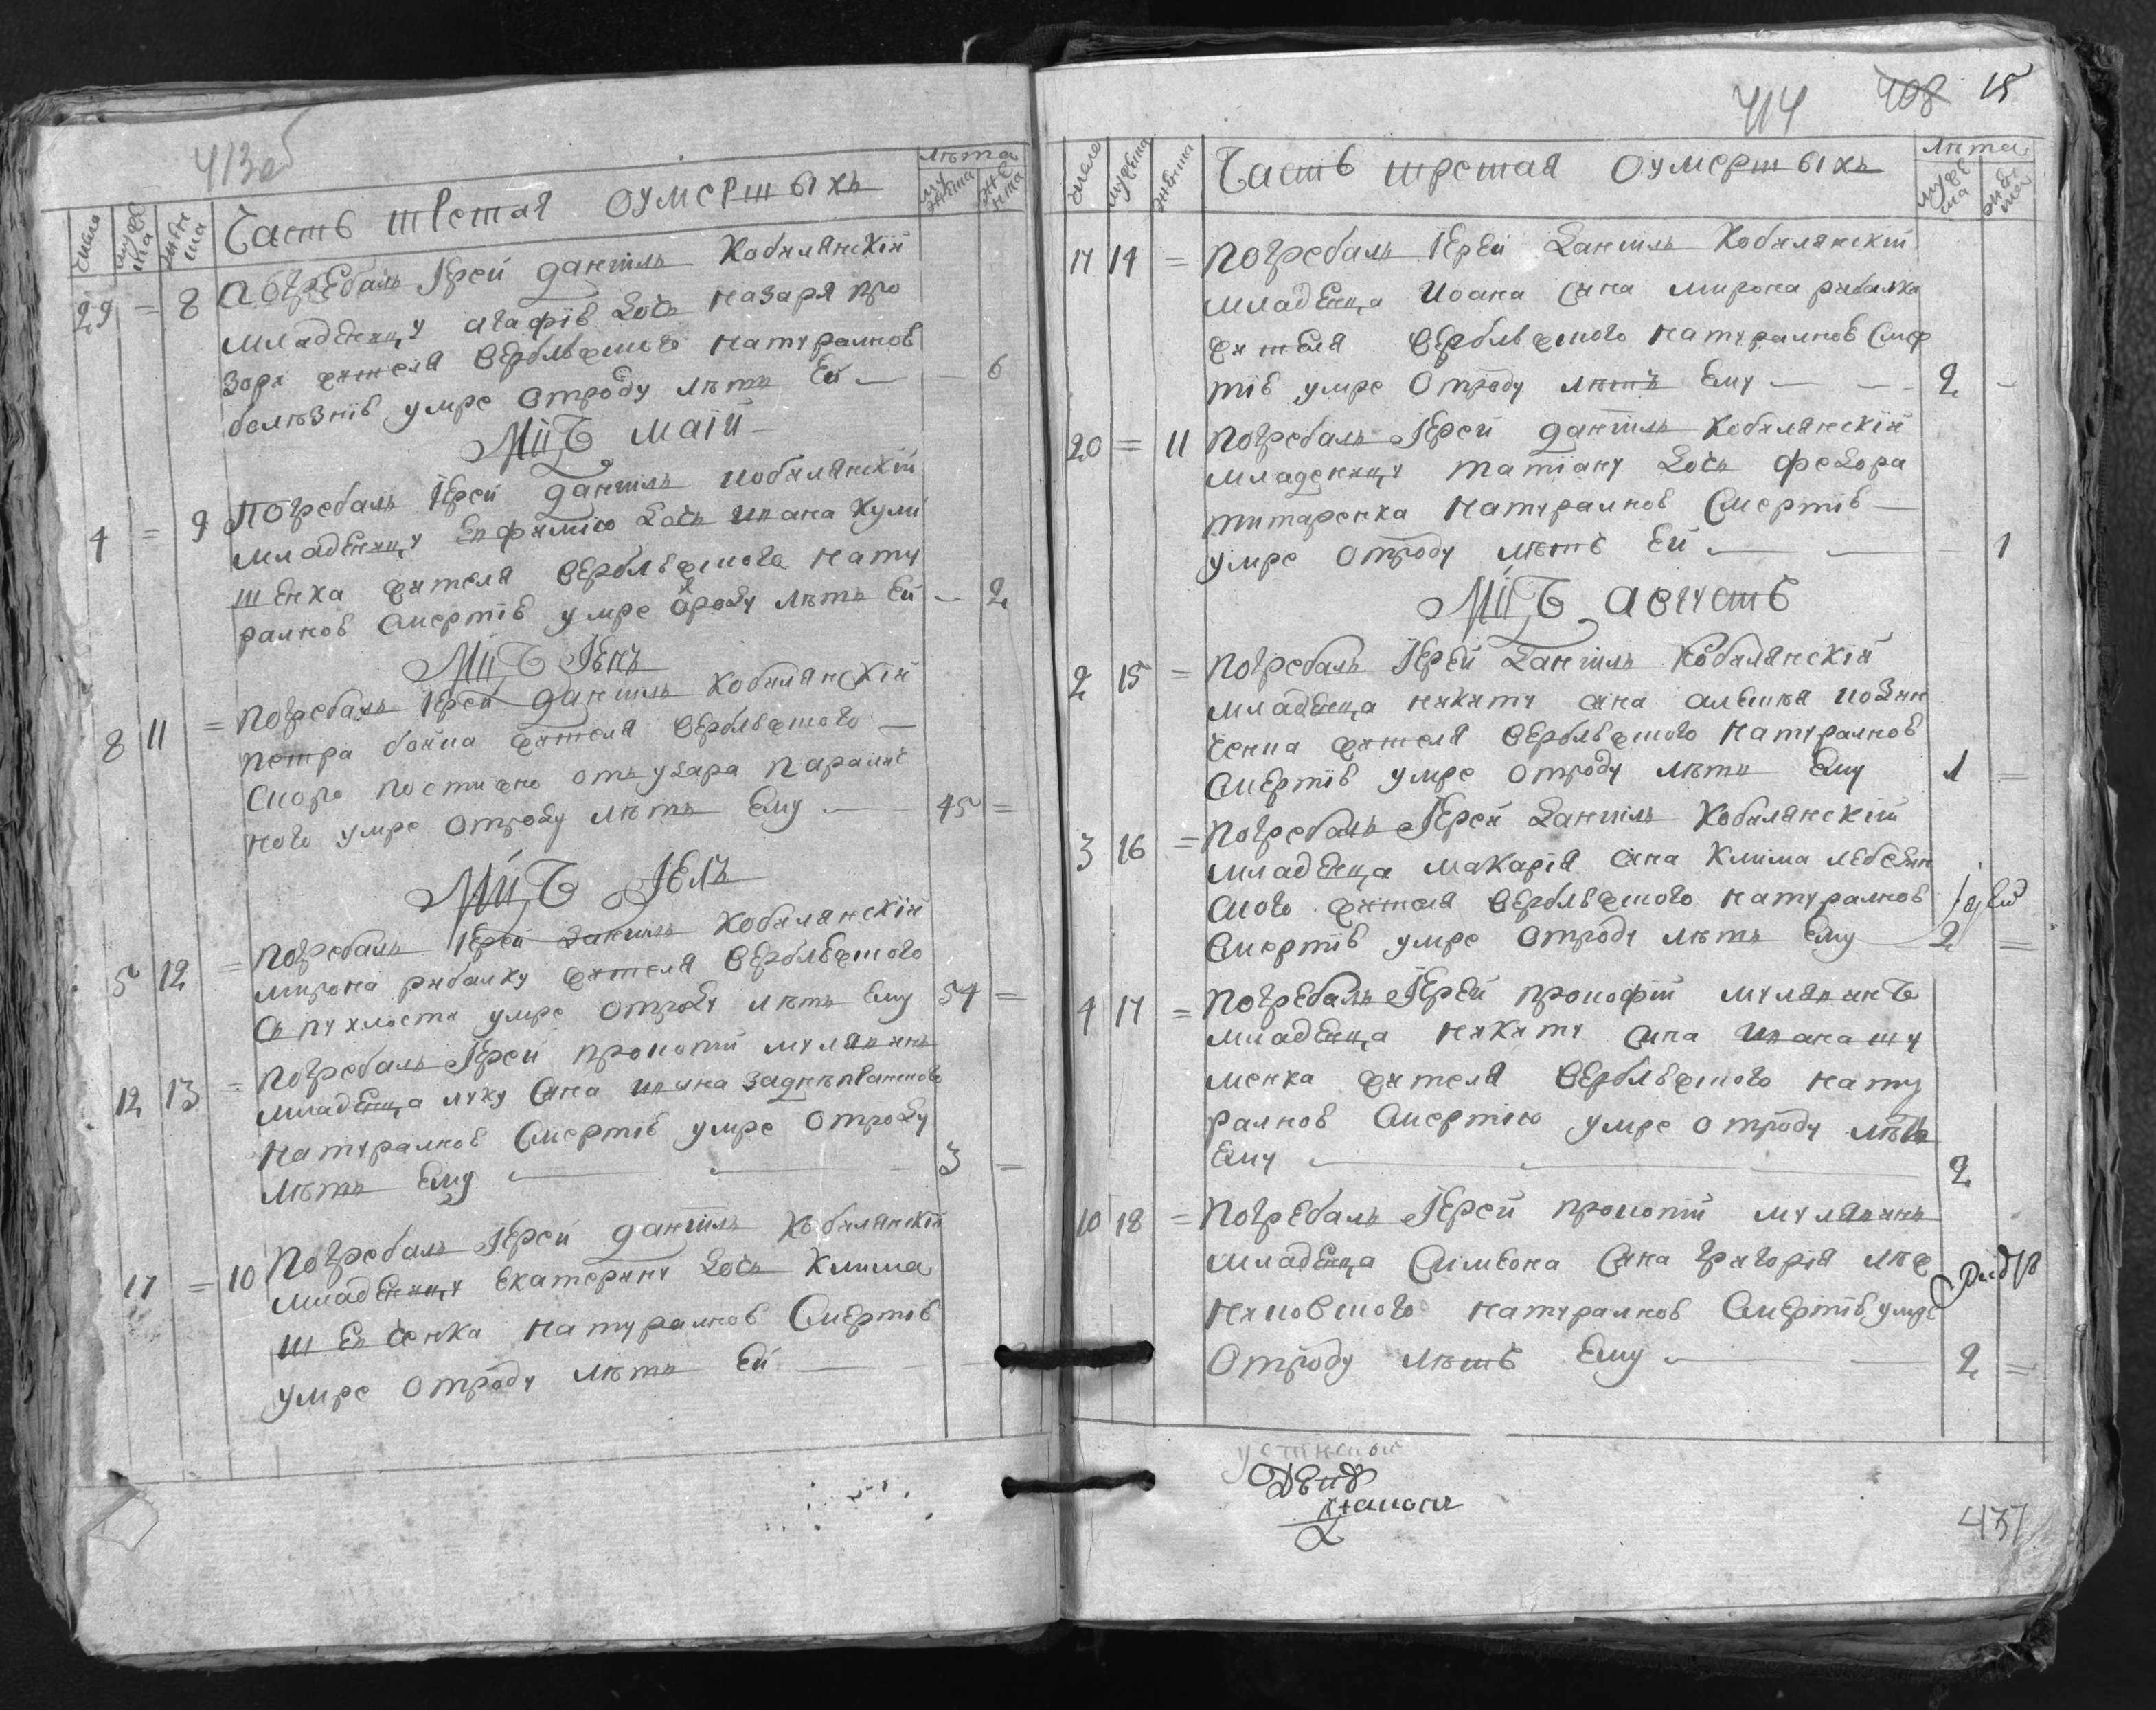 413об
Часть третая оумершыхъ
лѣта
29 = 8 Погребалъ Іерей Даниілъ Кобилянскій
младеницу агафію дочь назаря про
зоря жителя вербл҃южого натуралною
болѣзнію умре отроду лѣтъ Ей — — 6
Мц҃ъ маій
4 = 9 Погребалъ Іерей Даниілъ кобилянскій
младеницу Евфимію дочь ивана кули
шенка жителя верблюжого нату
ралною смертію умре ѿроду лѣтъ Ей — 2
Мц҃ъ Іюнъ
8 11 = Погребалъ Іерей Даниілъ кобилянскій
петра бойка жителя верблюжого —
скоро постижно отъ удара паралич
ного умре отроду лѣтъ Ему — 45 =
Мц҃ъ Іюлъ
5 12 = Погребалъ Іерей Даниілъ кобилянскій
мирона рибалку жителя верблюжого
съ пухлости умре отроду лѣтъ Ему 54 =
12 13 = Погребалъ Іерей прокопій
младенца луку сина ивана
натуралною смертію умре отроду
лѣтъ Ему — — 3 =
17 = 10 Погребалъ Іерей Даниілъ кобилянскій
младеницу Екатерину дочь клима
шевченка натуралною смертію
умре отроду лѣтъ Ей —
414 408 15
Часть третая оумершыхъ
лѣта
17 14 = Погребалъ Іерей Даниілъ кобилянскій
младенца иоана сина мирона рибалки
жителя верблюжого натуралною смер
тію умре отроду лѣтъ Ему — — 2 –
20 = 11 Погребалъ Іерей Даниілъ кобилянскій
младеницу татіану дочь федора
титаренка натуралною смертію —
умре отроду лѣтъ Ей — — 1
Мц҃ъ августъ
2 15 = Погребалъ Іерей Даниілъ кобилянскій
младенца никиту сина
жителя верблюжого натуралною
смертію умре отроду лѣтъ Ему 1 =
3 16 = Погребалъ Іерей Даниілъ кобилянскій
младенца макарія сина клима лебедин
ского жителя верблюжого натуралною
смертію умре отроду лѣтъ Ему 2 =
4 17 = Погребалъ Іерей прокофій
младенца никиту сина ивана шу
менка жителя верблюжого нату
ралною смертію умре отроду лѣтъ
Ему — — — 2
10 18 = Погребалъ Іерей прокопій
младенца сімеона сина григорія
натуралною смертію умре
отроду лѣтъ Ему — — 2 =
437